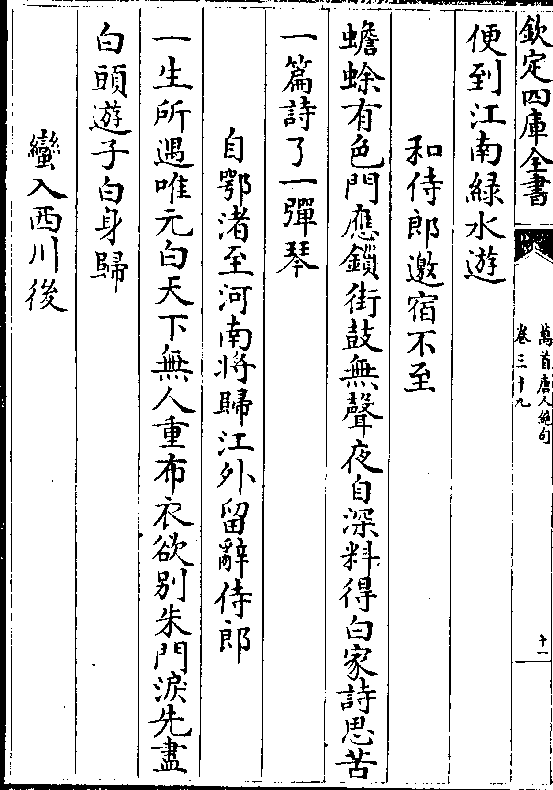 欽定四庫全書
萬首唐人絶句
卷三十九
十一
便到江南緑水遊
和侍郎邀宿不至
蟾蜍有色門應鎖街鼓無聲夜自深料得白家詩思苦
一篇詩了一彈琴
自鄂渚至河南將歸江外留辭侍郎
一生所遇唯元白天下無人重布衣欲别朱門淚先盡
白頭遊子白身歸
蠻入西川後